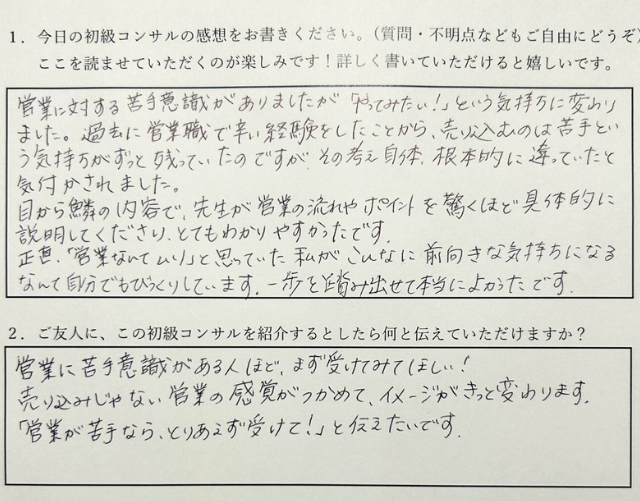 1．今日の初級コンサルの感想をお書きください。（質問・不明点などもご自由にどうぞ）
ここを読ませていただくのが楽しみです！詳しく書いていただけると嬉しいです。
営業に対する苦手意識がありましたが「やってみたい！」という気持ちに変わり
ました。過去に営業職で辛い経験をしたことから、売り込むのは苦手とい
う気持ちがずっと残っていたのですが、その考え自体、根本的に違っていたと
気付かされました。
目から鱗の内容で、先生が営業の流れやポイントを驚くほど具体的に
説明してくださり、とてもわかりやすかったです。
正直、「営業なんてムリ」と思っていた私が、こんなに前向きな気持ちになる
なんて自分でもびっくりしています。一歩を踏み出せて本当によかったです。
2．ご友人に、この初級コンサルを紹介するとしたら何と伝えていただけますか？
営業に苦手意識がある人ほど、まず受けてみてほしい！
売り込みじゃない営業の感覚がつかめて、イメージがきっと変わります。
「営業が苦手なら、とりあえず受けて！」と伝えたいです。